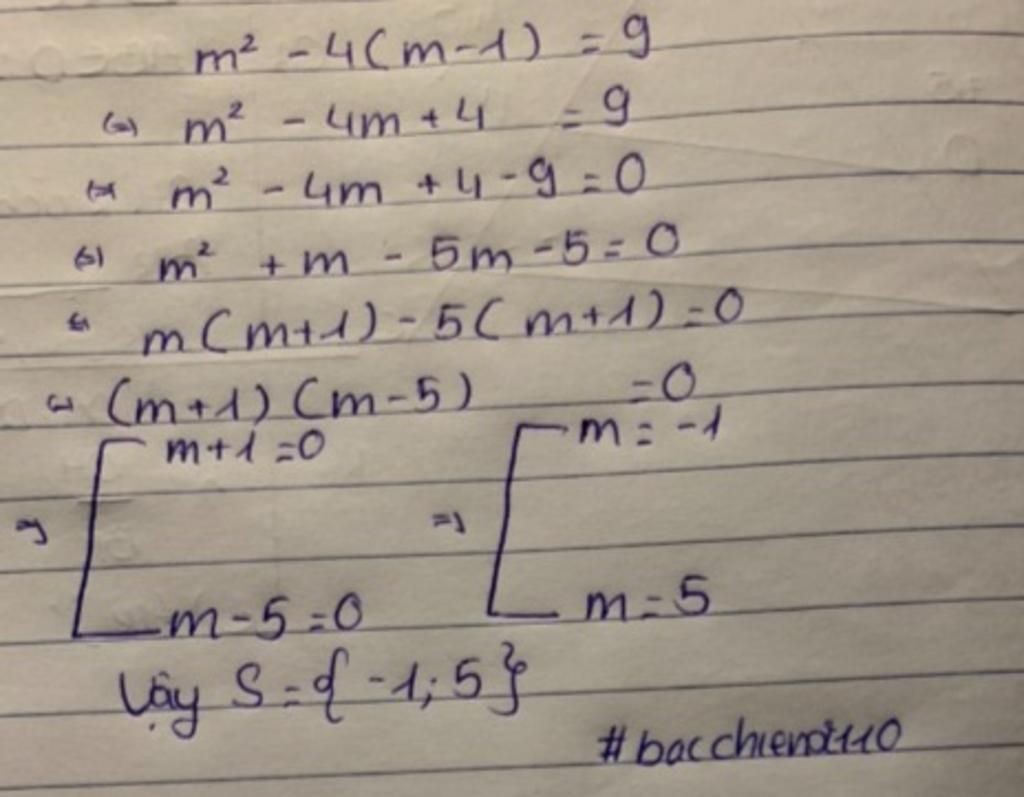 m² - 4(m-1) = 9
<=> m² - 4m + 4 = 9
<=> m² - 4m + 4 - 9 = 0
<=> m² + m - 5m - 5 = 0
<=> m(m+1) - 5(m+1) = 0
<=> (m+1)(m-5) = 0
=> [ m+1 = 0 => [ m = -1
m-5 = 0 m = 5
Vậy S = {-1; 5}